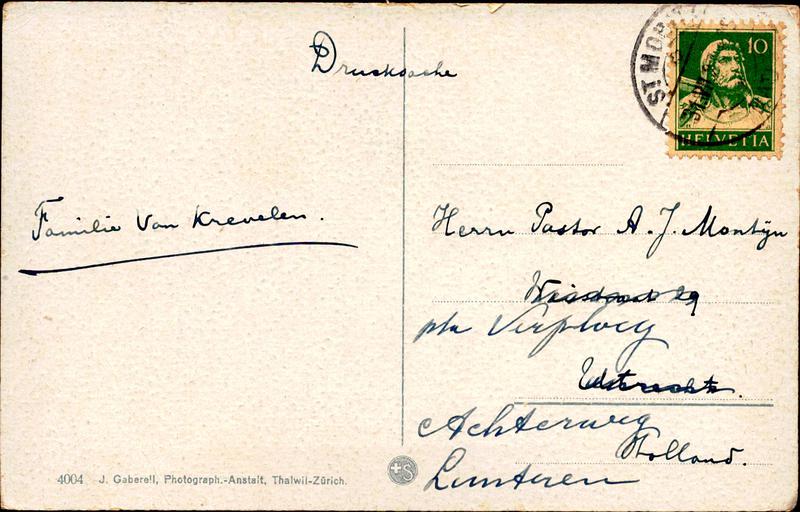 Drucksache
ST. MORITZ
10
HELVETIA
Familie Van Krevelen.
Herrn Pastor A. J. Montijn
p/a Verploeg
Utrecht.
Achterweg
Holland.
Lunteren
4004 J. Gaberell, Photograph.-Anstalt, Thalwil-Zürich.
+S